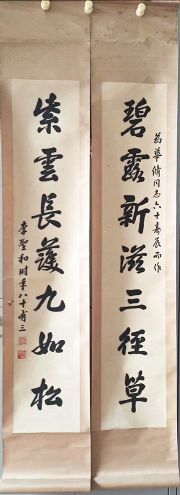 碧露新滋三徑草
為華修同志六十壽辰而作
紫雲長護九如松
李聖和時年八十有三